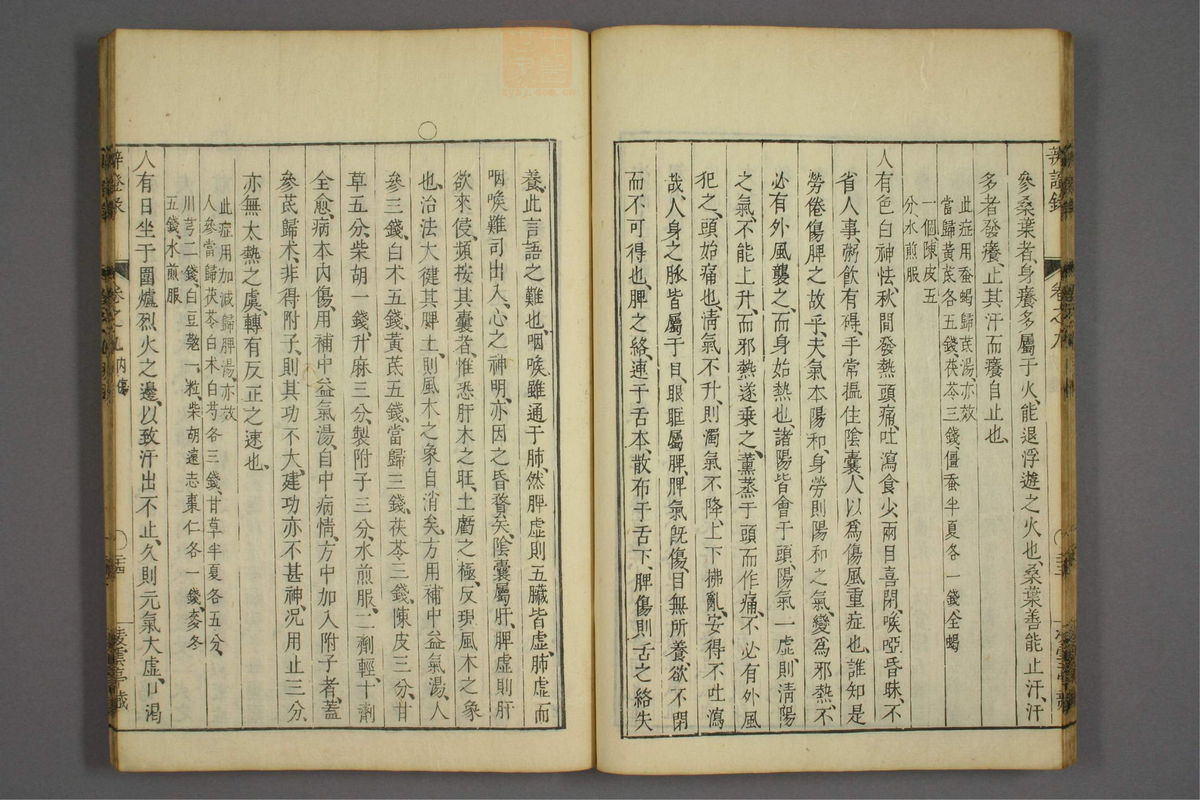 辨證錄
卷之九
參桑葉者、身癢多屬于火、能退浮遊之火也、桑葉善能止汗、汗
多者發癢、止其汗而癢自止也、
此症用蚕蝎歸芪湯、亦效
當歸黄芪各五錢、茯苓三錢、僵蚕半夏各一錢、全蝎
一個、陳皮五
分、水煎服
人有色白神怯、秋間發熱頭痛、吐瀉食少、兩目喜閉、喉啞昏昧、不
省人事、粥飲有碍、手常揾住陰囊、人以爲傷風重症也、誰知是
勞倦傷脾之故乎、夫氣本陽和、身勞則陽和之氣、變爲邪熱、不
必有外風襲之、而身始熱也、諸陽皆會于頭、陽氣一虛、則清陽
之氣、不能上升、而邪熱遂乘之、薰蒸于頭而作痛、不必有外風
犯之、頭始痛也、清氣不升、則濁氣不降、上下拂亂、安得不吐瀉
哉、人身之脉、皆屬于目、眼眶屬脾、脾氣旣傷、目無所養、欲不閉
而不可得也、脾之絡、連于舌本、散布于舌下、脾傷則舌之絡失
養、此言語之難也、咽喉雖通于肺、然脾虛則五臟皆虛、肺虛而
咽喉難司出入、心之神明、亦因之昏瞀矣、陰囊屬肝、脾虛則肝
欲來侵、頻按其囊者、惟恐肝木之旺、土虧之極、反現風木之象
也、治法大健其脾土、則風木之象自消矣、方用補中益氣湯、人
參三錢、白术五錢、黄芪五錢、當歸三錢、茯苓三錢、陳皮三分、甘
草五分、柴胡一錢、升麻三分、製附子三分、水煎服、二劑輕、十劑
全愈、病本内傷、用補中益氣湯、自中病情、方中加入附子者、蓋
參芪歸术、非得附子、則其功不大、建功亦不甚神、况用止三分、
亦無太熱之虞、轉有反正之速也、
此症用加減歸脾湯、亦效
人參當歸茯苓白术白芍各三錢、甘草半夏各五分、
川芎二錢、白豆蔻一粒、柴胡遠志棗仁各一錢、麥冬
五錢、水煎服
人有日坐于圍爐烈火之邊、以致汗出不止、久則元氣大虛、口渴
辨證錄
卷之九 內傷